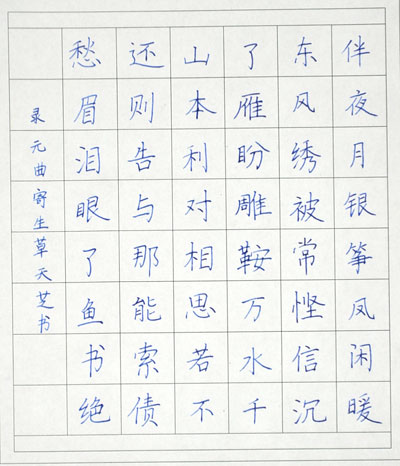 伴夜月银筝凤闲暖
东风绣被常悭信沉
了雁盼雕鞍万水千
山本利对相思若不
还则告与那能索债
愁眉泪眼了鱼书绝
录元曲寄生草天芝书